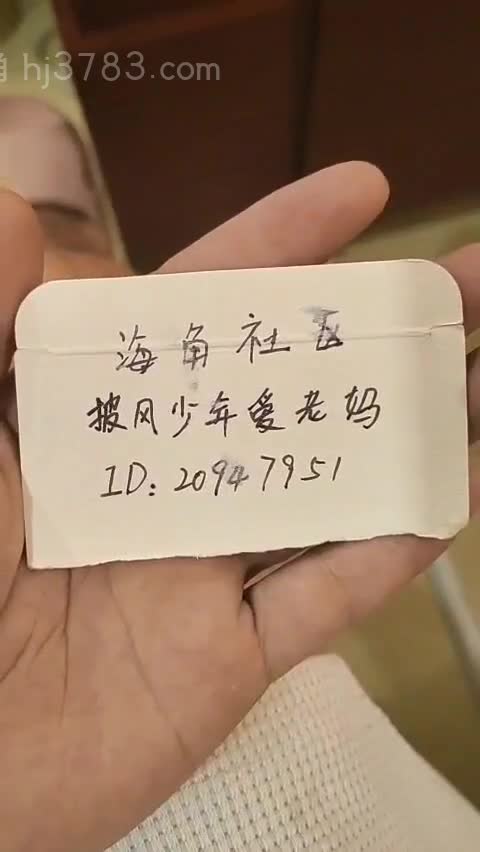 角 hj3783.com
海角社区
披风少年爱老妈
ID: 20947951